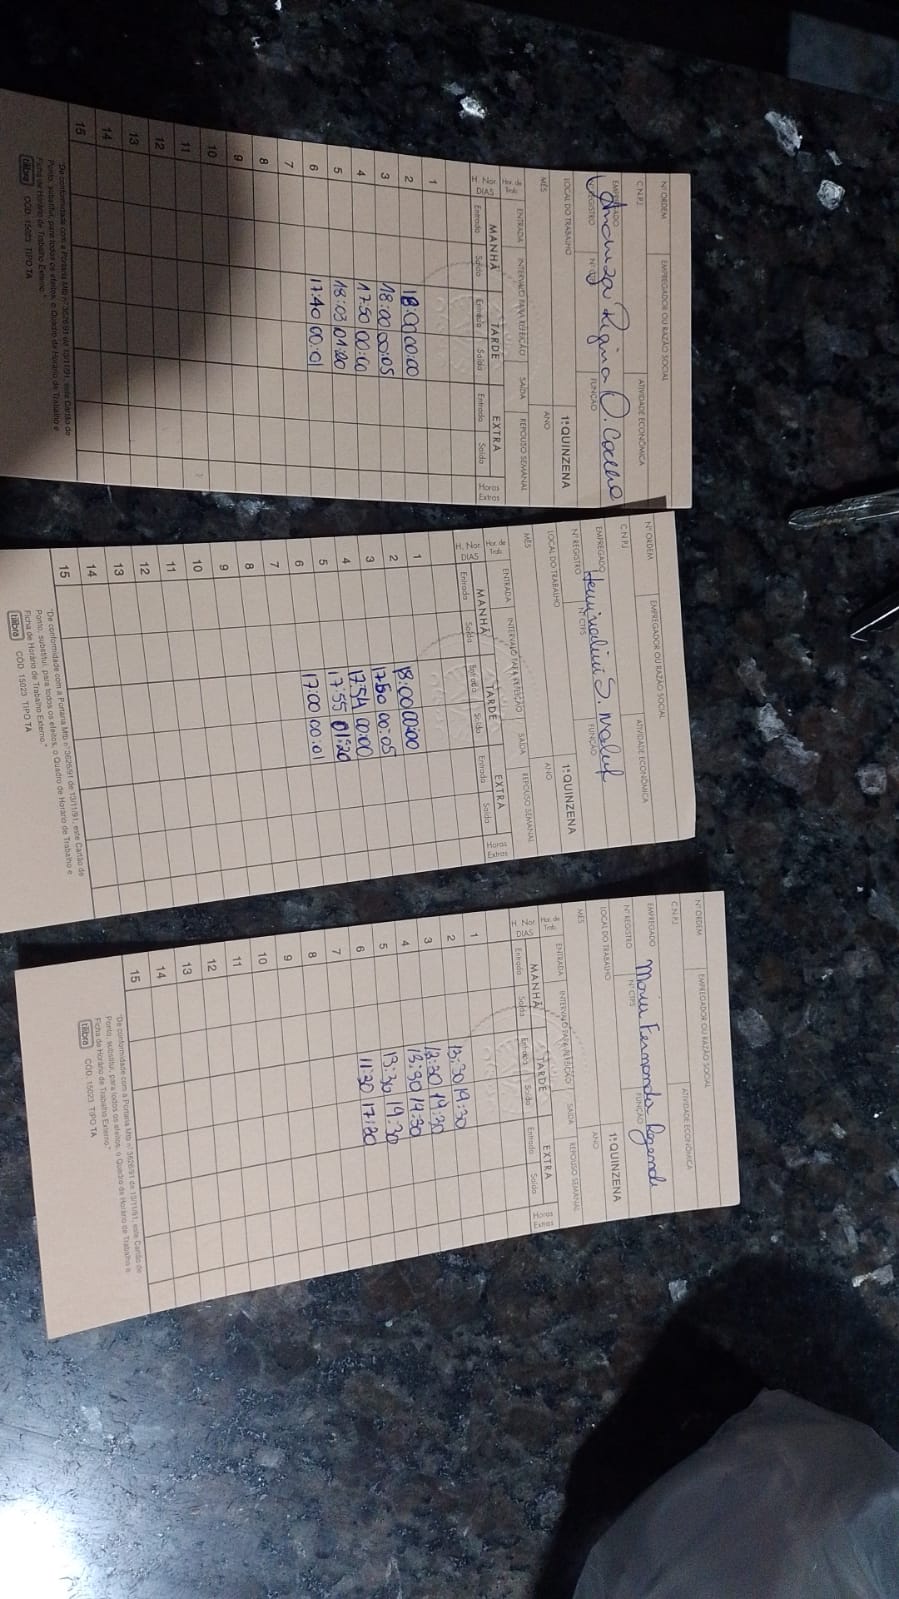 Nº ORDEM EMPREGADOR OU RAZÃO SOCIAL
C.N.P.J. ATIVIDADE ECONÔMICA
EMPREGADO Andreza Regina O. Coelho
Nº REGISTRO FUNÇÃO
LOCAL DO TRABALHO 1ª QUINZENA
MÊS ANO
Hor. de Trab. ENTRADA INTERVALO PARA REFEIÇÃO SAÍDA REPOUSO SEMANAL
H. Nor. DIAS MANHÃ TARDE EXTRA Horas Extras
Entrada Saída Entrada Saída Entrada Saída
1
2 18:00 00:00
3 18:00 00:05
4 17:50 00:00
5 18:03 01:20
6 17:40 00:01
7
8
9
10
11
12
13
14
15
"De conformidade com a Portaria Mtb nº 3626/91 de 13/11/91, este Cartão de
Ponto, substitui, para todos os efeitos, o Quadro de Horário de Trabalho e
Ficha de Horário de Trabalho Externo."
tilibra CÓD. 15023 TIPO TA
Nº ORDEM EMPREGADOR OU RAZÃO SOCIAL
C.N.P.J. ATIVIDADE ECONÔMICA
EMPREGADO S. Maluf
Nº REGISTRO Nº CTPS FUNÇÃO
LOCAL DO TRABALHO 1ª QUINZENA
MÊS ANO
Hor. de Trab. ENTRADA INTERVALO PARA REFEIÇÃO SAÍDA REPOUSO SEMANAL
H. Nor. DIAS MANHÃ TARDE EXTRA Horas Extras
Entrada Saída Entrada Saída Entrada Saída
1
2 18:00 00:00
3 17:50 00:05
4 17:54 00:00
5 17:55 01:20
6 17:00 00:01
7
8
9
10
11
12
13
14
15
"De conformidade com a Portaria Mtb nº 3626/91 de 13/11/91, este Cartão de
Ponto, substitui, para todos os efeitos, o Quadro de Horário de Trabalho e
Ficha de Horário de Trabalho Externo."
tilibra CÓD. 15023 TIPO TA
Nº ORDEM EMPREGADOR OU RAZÃO SOCIAL
C.N.P.J. ATIVIDADE ECONÔMICA
EMPREGADO Maria Fernanda Rezende
Nº REGISTRO Nº CTPS FUNÇÃO
LOCAL DO TRABALHO 1ª QUINZENA
MÊS ANO
Hor. de Trab. ENTRADA INTERVALO PARA REFEIÇÃO SAÍDA REPOUSO SEMANAL
H. Nor. DIAS MANHÃ TARDE EXTRA Horas Extras
Entrada Saída Entrada Saída Entrada Saída
1
2 13:30 19:30
3 13:30 19:30
4 13:30 19:30
5 13:30 19:30
6 11:30 17:30
7
8
9
10
11
12
13
14
15
"De conformidade com a Portaria Mtb nº 3626/91 de 13/11/91, este Cartão de
Ponto, substitui, para todos os efeitos, o Quadro de Horário de Trabalho e
Ficha de Horário de Trabalho Externo."
tilibra CÓD. 15023 TIPO TA